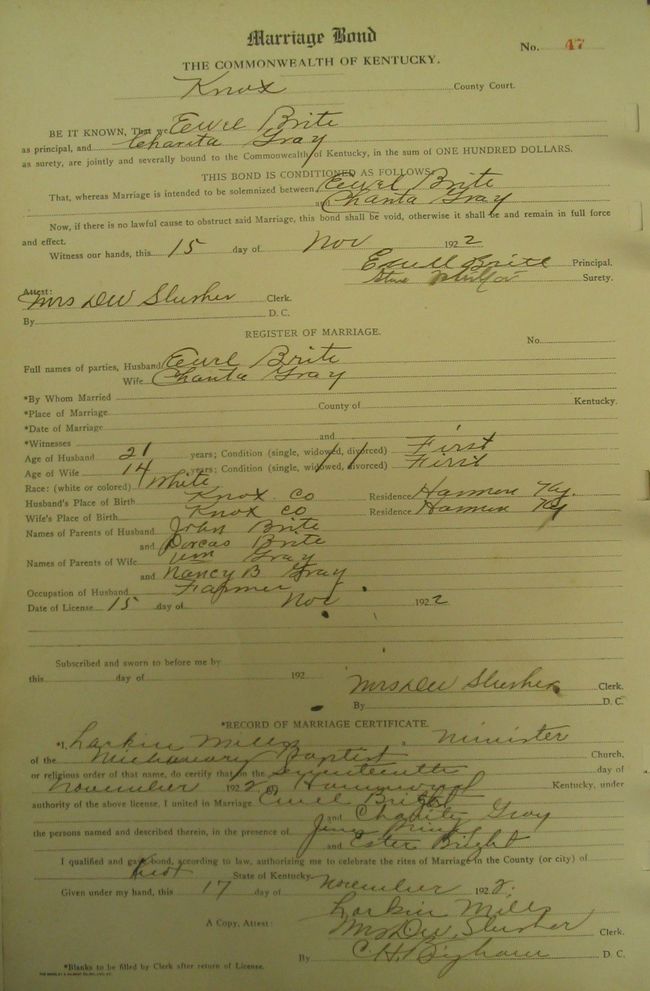 Marriage Bond
No. 47
THE COMMONWEALTH OF KENTUCKY.
Knox County Court.
BE IT KNOWN, That we Ewel Brite
as principal, and Charita Gray
as surety, are jointly and severally bound to the Commonwealth of Kentucky, in the sum of ONE HUNDRED DOLLARS.
THIS BOND IS CONDITIONED AS FOLLOWS:
That, whereas Marriage is intended to be solemnized between Ewel Brite
and Chanta Gray
Now, if there is no lawful cause to obstruct said Marriage, this bond shall be void, otherwise it shall be and remain in full force
and effect.
Witness our hands, this 15 day of Nov 1922
Ewell Brite Principal.
Steve Surety.
Attest:
Mrs DW Slusher Clerk.
By D. C.
REGISTER OF MARRIAGE.
No.
Full names of parties, Husband Ewel Brite
Wife Chanta Gray
*By Whom Married
*Place of Marriage County of Kentucky.
*Date of Marriage
*Witnesses and
Age of Husband 21 years; Condition (single, widowed, divorced) First
Age of Wife 14 years; Condition (single, widowed, divorced) First
Race: (white or colored) White
Husband's Place of Birth Knox Co Residence Hammon Ky.
Wife's Place of Birth Knox Co Residence Hammon Ky
Names of Parents of Husband John Brite
and Dorcas Brite
Names of Parents of Wife Wm Gray
and Nancy B Gray
Occupation of Husband Farmer
Date of License 15 day of Nov 1922
Subscribed and sworn to before me by
this day of 192
Mrs DW Slusher Clerk.
By D. C.
*RECORD OF MARRIAGE CERTIFICATE.
*I, Larkin Mills, Minister
of the Missionary Baptist Church,
or religious order of that name, do certify that on the Seventeenth day of
November 1922, at Kentucky, under
authority of the above license, I united in Marriage Ewel Bright
and Charity Gray
the persons named and described therein, in the presence of
and Ester Bright
I qualified and gave bond, according to law, authorizing me to celebrate the rites of Marriage in the County (or city) of
State of Kentucky.
Given under my hand, this 17 day of November 1922.
Larkin Mills
A Copy, Attest: Mrs DW Slusher Clerk.
By C H. Bigham D. C.
*Blanks to be filled by Clerk after return of License.